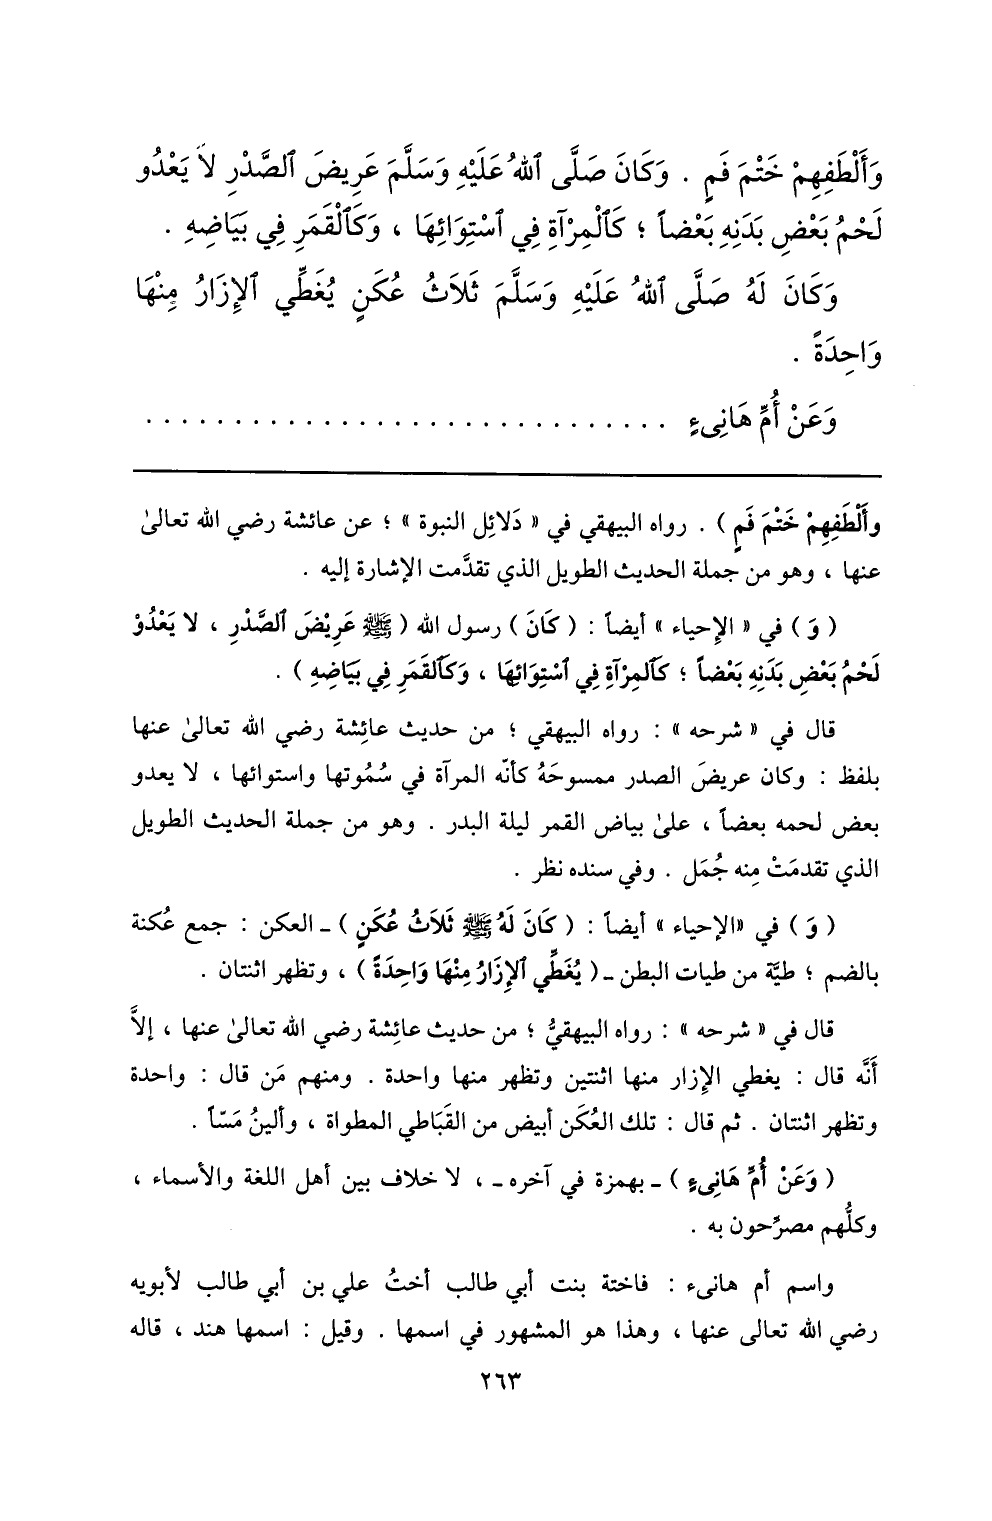 وَأَلْطَفِهِمْ خَتْمَ فَمٍ . وَكَانَ صَلَّى ٱللهُ عَلَيْهِ وَسَلَّمَ عَرِيضَ ٱلصَّدْرِ لاَ يَعْدُو
لَحْمُ بَعْضِ بَدَنِهِ بَعْضاً ؛ كَٱلْمِرْآةِ فِي ٱسْتِوَائِهَا ، وَكَٱلْقَمَرِ فِي بَيَاضِهِ .
وَكَانَ لَهُ صَلَّى ٱللهُ عَلَيْهِ وَسَلَّمَ ثَلاَثُ عُكَنٍ يُغَطِّي ٱلإِزَارُ مِنْهَا
وَاحِدَةً .
وَعَنْ أُمِّ هَانِىءٍ . . . . . . . . . . . . . . . . . . . . . . . . . . . . . .
وأَلْطَفِهِمْ خَتْمَ فَمٍ ) . رواه البيهقي في « دَلائِل النبوة » ؛ عن عائشة رضي الله تعالىٰ
عنها ، وهو من جملة الحديث الطويل الذي تقدَّمت الإشارة إليه .
( وَ ) في « الإِحياء » أيضاً : ( كَانَ ) رسول الله ( ﷺ عَرِيْضَ ٱلصَّدْرِ ، لا يَعْدُوْ
لَحْمُ بَعْضِ بَدَنِهِ بَعْضاً ؛ كَٱلمِرْآةِ فِي ٱسْتِوَائِهَا ، وَكَٱلقَمَرِ فِي بَيَاضِهِ ) .
قال في « شرحه » : رواه البيهقي ؛ من حديث عائِشة رضي الله تعالىٰ عنها
بلفظ : وكان عريضَ الصدر ممسوحَهُ كأنّه المرآة في سُمُوتها واستوائها ، لا يعدو
بعض لحمه بعضاً ، علىٰ بياض القمر ليلة البدر . وهو من جملة الحديث الطويل
الذي تقدمَتْ مِنه جُمَل . وفي سنده نظر .
( وَ ) في «الإحياء » أيضاً : ( كَانَ لَهُ ﷺ ثَلاَثُ عُكَنٍ ) ـ العكن : جمع عُكنة
بالضم ؛ طيَّة من طيات البطن ـ ( يُغَطِّي ٱلإِزَارُ مِنْهَا وَاحِدَةً ) ، وتظهر اثنتان .
قال في « شرحه » : رواه البيهقيُّ ؛ من حديث عائِشة رضي الله تعالىٰ عنها ، إلاَّ
أَنَّه قال : يغطي الإِزار منها اثنتين وتظهر منها واحدة . ومنهم مَن قال : واحدة
وتظهر اثنتان . ثم قال : تلك العُكَن أبيض من القَبَاطي المطواة ، وألينُ مَسّاً .
( وَعَنْ أُمِّ هَانِىءٍ ) ـ بهمزة في آخره ـ ، لا خلاف بين أهل اللغة والأسماء ،
وكلُّهم مصرِّحون به .
واسم أم هانىء : فاختة بنت أبي طالب أختُ علي بن أبي طالب لأبويه
رضي الله تعالى عنها ، وهذا هو المشهور في اسمها . وقيل : اسمها هند ، قاله
٢٦٣